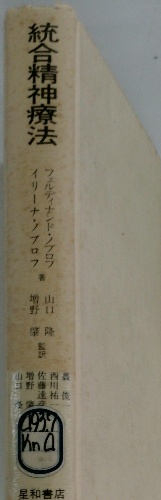 統合精神療法
フェルディナンド・ノブロフ
イリーナ・ノブロフ
著
山口 隆
増野 肇
監訳
西川祐一
佐藤達彦
増野 肇
山口 隆
星和書店